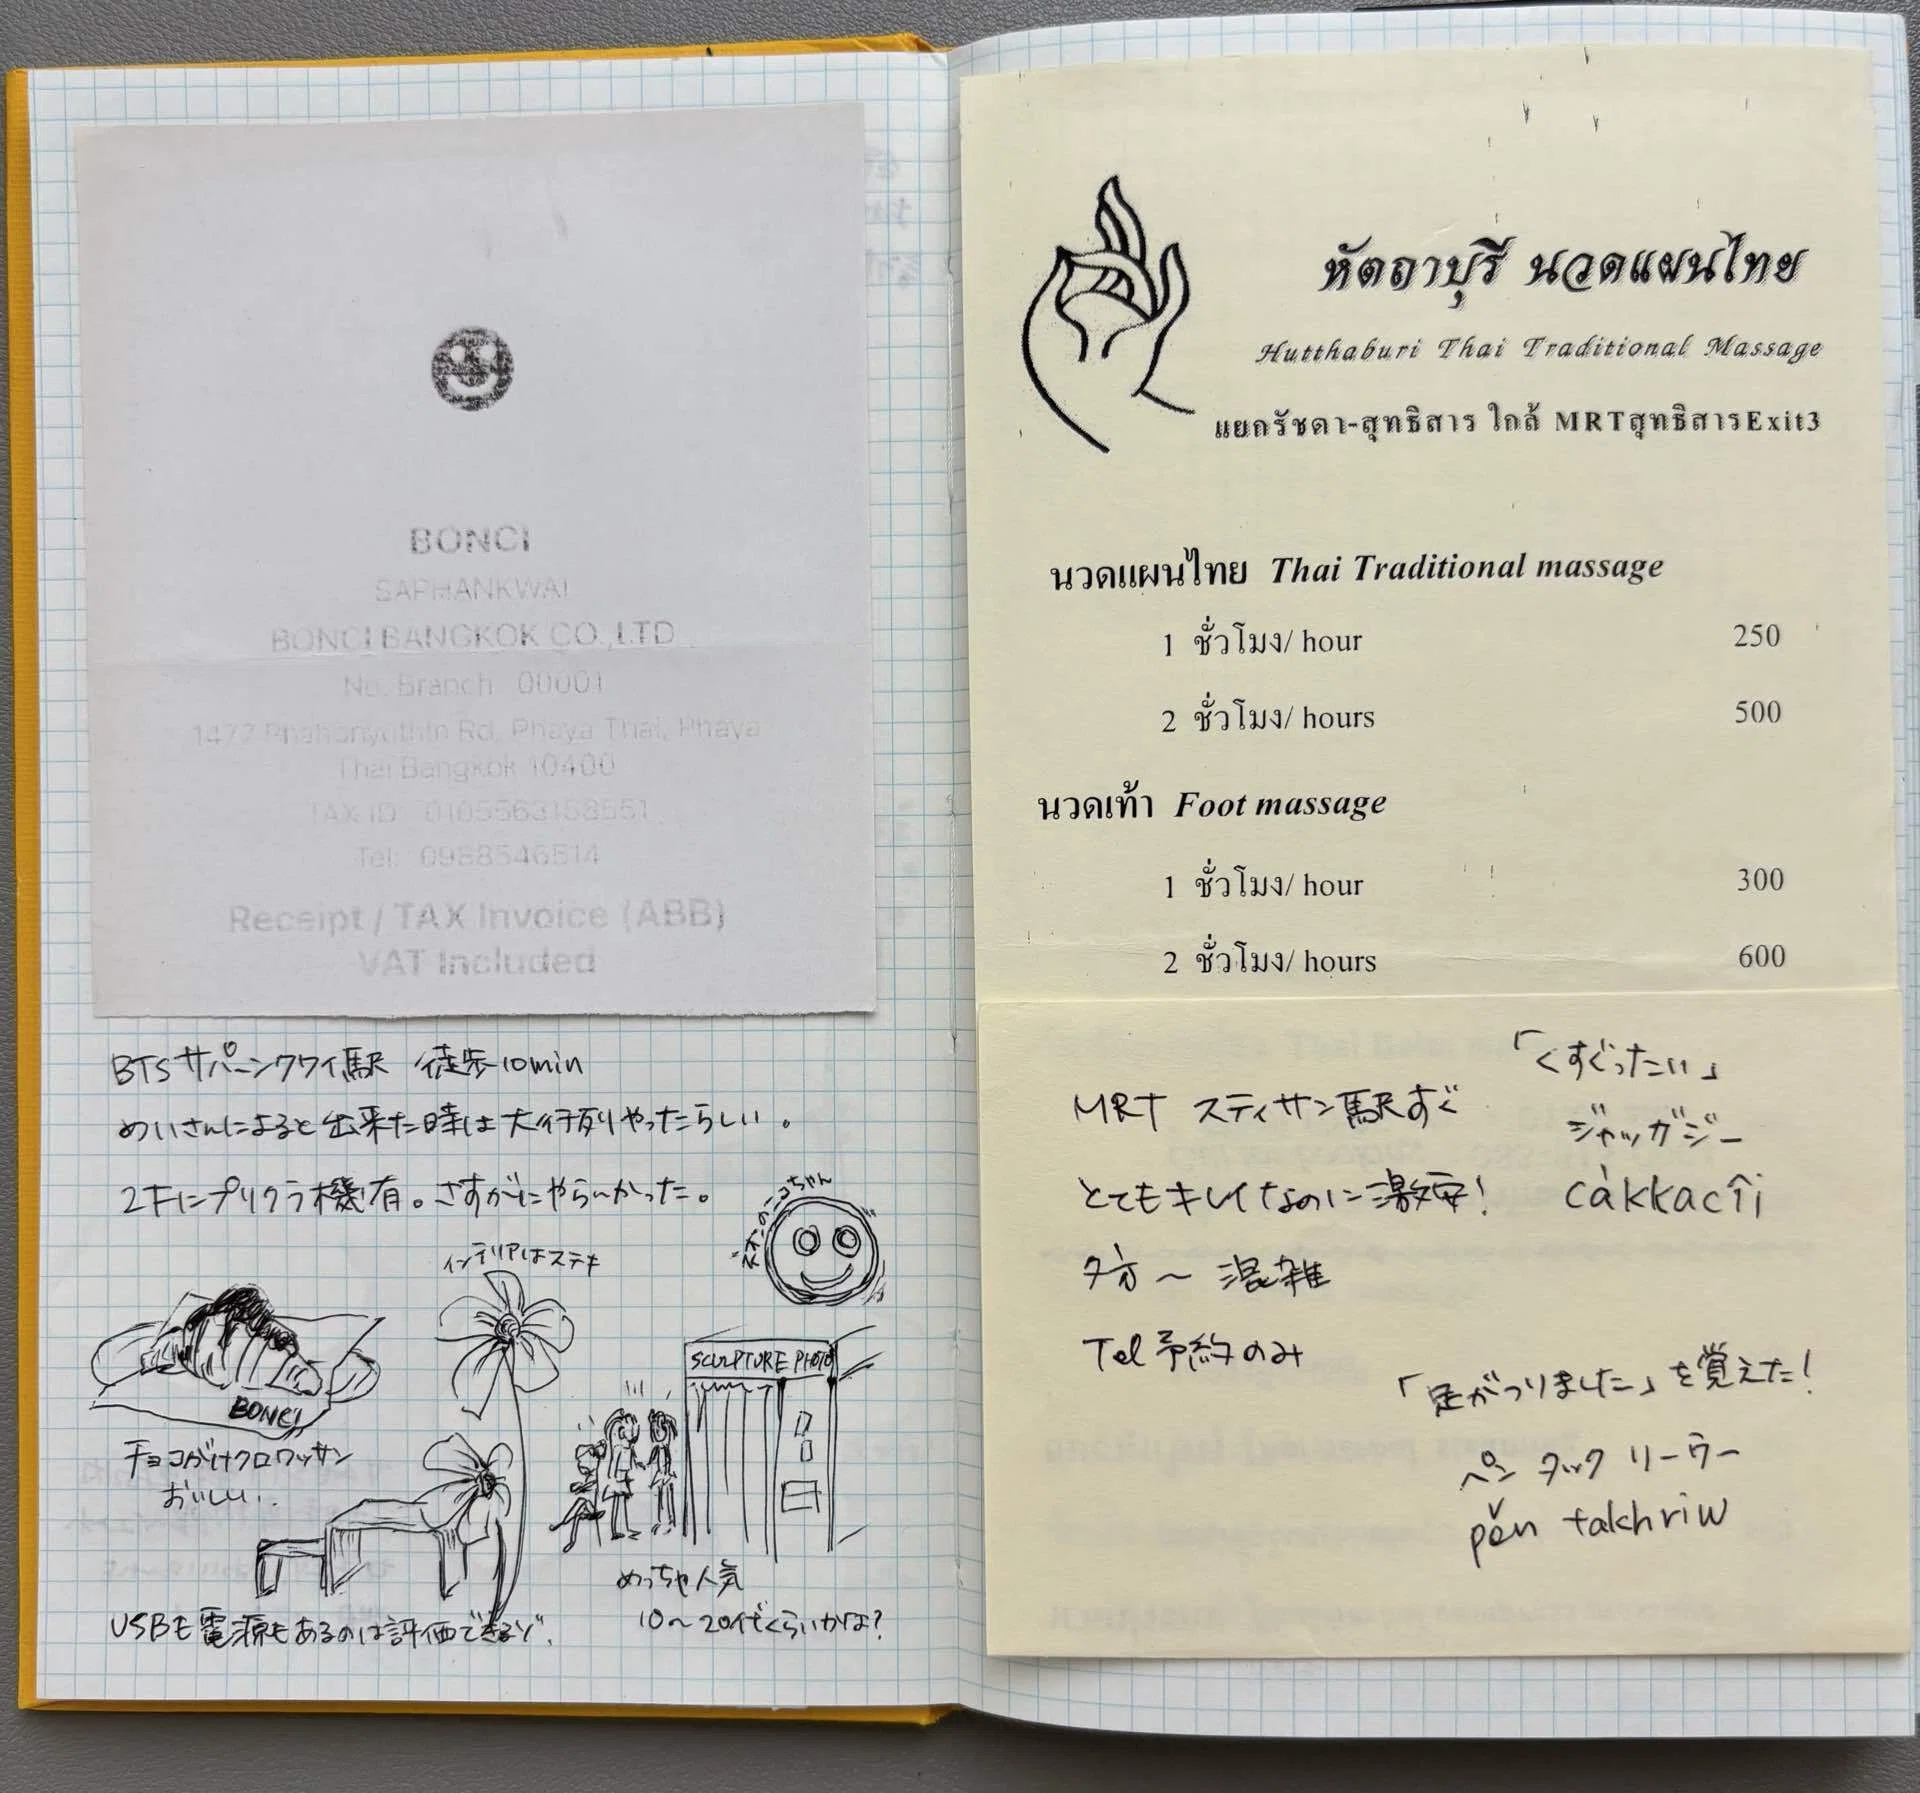 BONCI
SAPHANKWAI
BONCI BANGKOK CO.,LTD
No. Branch 00001
1477 Phahonyothin Rd, Phaya Thai, Phaya
Thai Bangkok 10400
TAX ID 0105563158551
Tel: 0988546514
Receipt / TAX Invoice (ABB)
VAT Included
BTSサパーンクワイ駅 徒歩10min
めいさんによると出来た時は大行列やったらしい。
2Fにプリクラ機有。さすがにやらんかった。
インテリアはステキ
ネオンのニコちゃん
BONCI
チョコがけクロワッサン
おいしい..
SCULPTURE PHOTO
めっちゃ人気
10〜20代くらいかな?
USBも電源もあるのは評価できるゾ.
หัตถาบุรี นวดแผนไทย
Hutthaburi Thai Traditional Massage
แยกรัชดา-สุทธิสาร ใกล้ MRTสุทธิสารExit3
นวดแผนไทย Thai Traditional massage
1 ชั่วโมง/ hour 250
2 ชั่วโมง/ hours 500
นวดเท้า Foot massage
1 ชั่วโมง/ hour 300
2 ชั่วโมง/ hours 600
MRT スティサン駅すぐ
とてもキレイなのに激安!
夕方〜混雑
Tel予約のみ
「くすぐったい」
ジャッガジー
càkkacîi
「足がつりました」を覚えた!
ペン タック リーウー
pěn takhriw